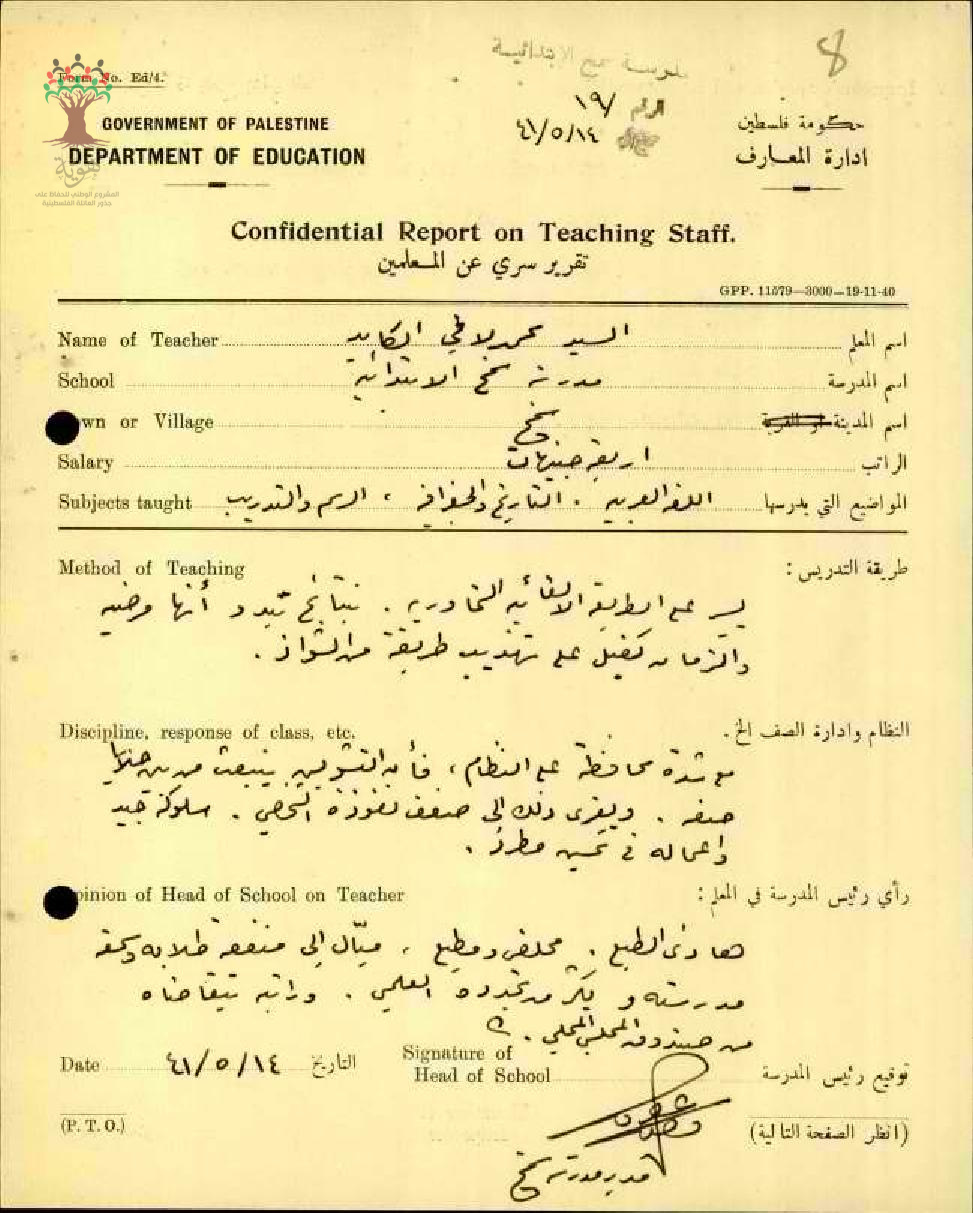 8
Form No. Ed/4.
الرقم /١٩
٤١/٥/١٤
GOVERNMENT OF PALESTINE
حكومة فلسطين
DEPARTMENT OF EDUCATION
ادارة المعارف
هوية
المشروع الوطني للحفاظ على
جذور العائلة الفلسطينية
Confidential Report on Teaching Staff.
تقرير سري عن المعلمين
GPP. 11579—3000—19-11-40
Name of Teacher السيد محمد لاطي الكايد اسم المعلم
School مدرسة سمخ الابتدائية اسم المدرسة
Town or Village سمخ اسم المدينة او القرية
Salary اربعة جنيهات الراتب
Subjects taught اللغة العربية . التاريخ والجغرافية ، الرسم والتدريب المواضيع التي يدرسها
Method of Teaching طريقة التدريس :
يسير على الطريقة الالقائية التحاورية . نتائج تبدو أنها مرضية
والزمان كفيل على تهذيب طريقة من الشواذ .
Discipline, response of class, etc. النظام وادارة الصف الخ .
مع شدة محافظة على النظام ، فأن التشويش ينبعث من بين
صفه . ويعزى ذلك الى ضعف نفوذه الشخصي . سلوكه جيد
واعماله في تحسين مطرد .
Opinion of Head of School on Teacher رأي رئيس المدرسة في المعلم :
هادئ الطبع . مخلص ومطيع ، ميّال الى منفعة طلابه وسمعة
مدرسته و يكثر من تجدده العلمي . وراتبه يتقاضاه
من صندوق المجلس المحلي .
Date ٤١/٥/١٤ التاريخ
Signature of
Head of School توقيع رئيس المدرسة
(P. T. O.)
(انظر الصفحة التالية)
مدير مدرسة سمخ